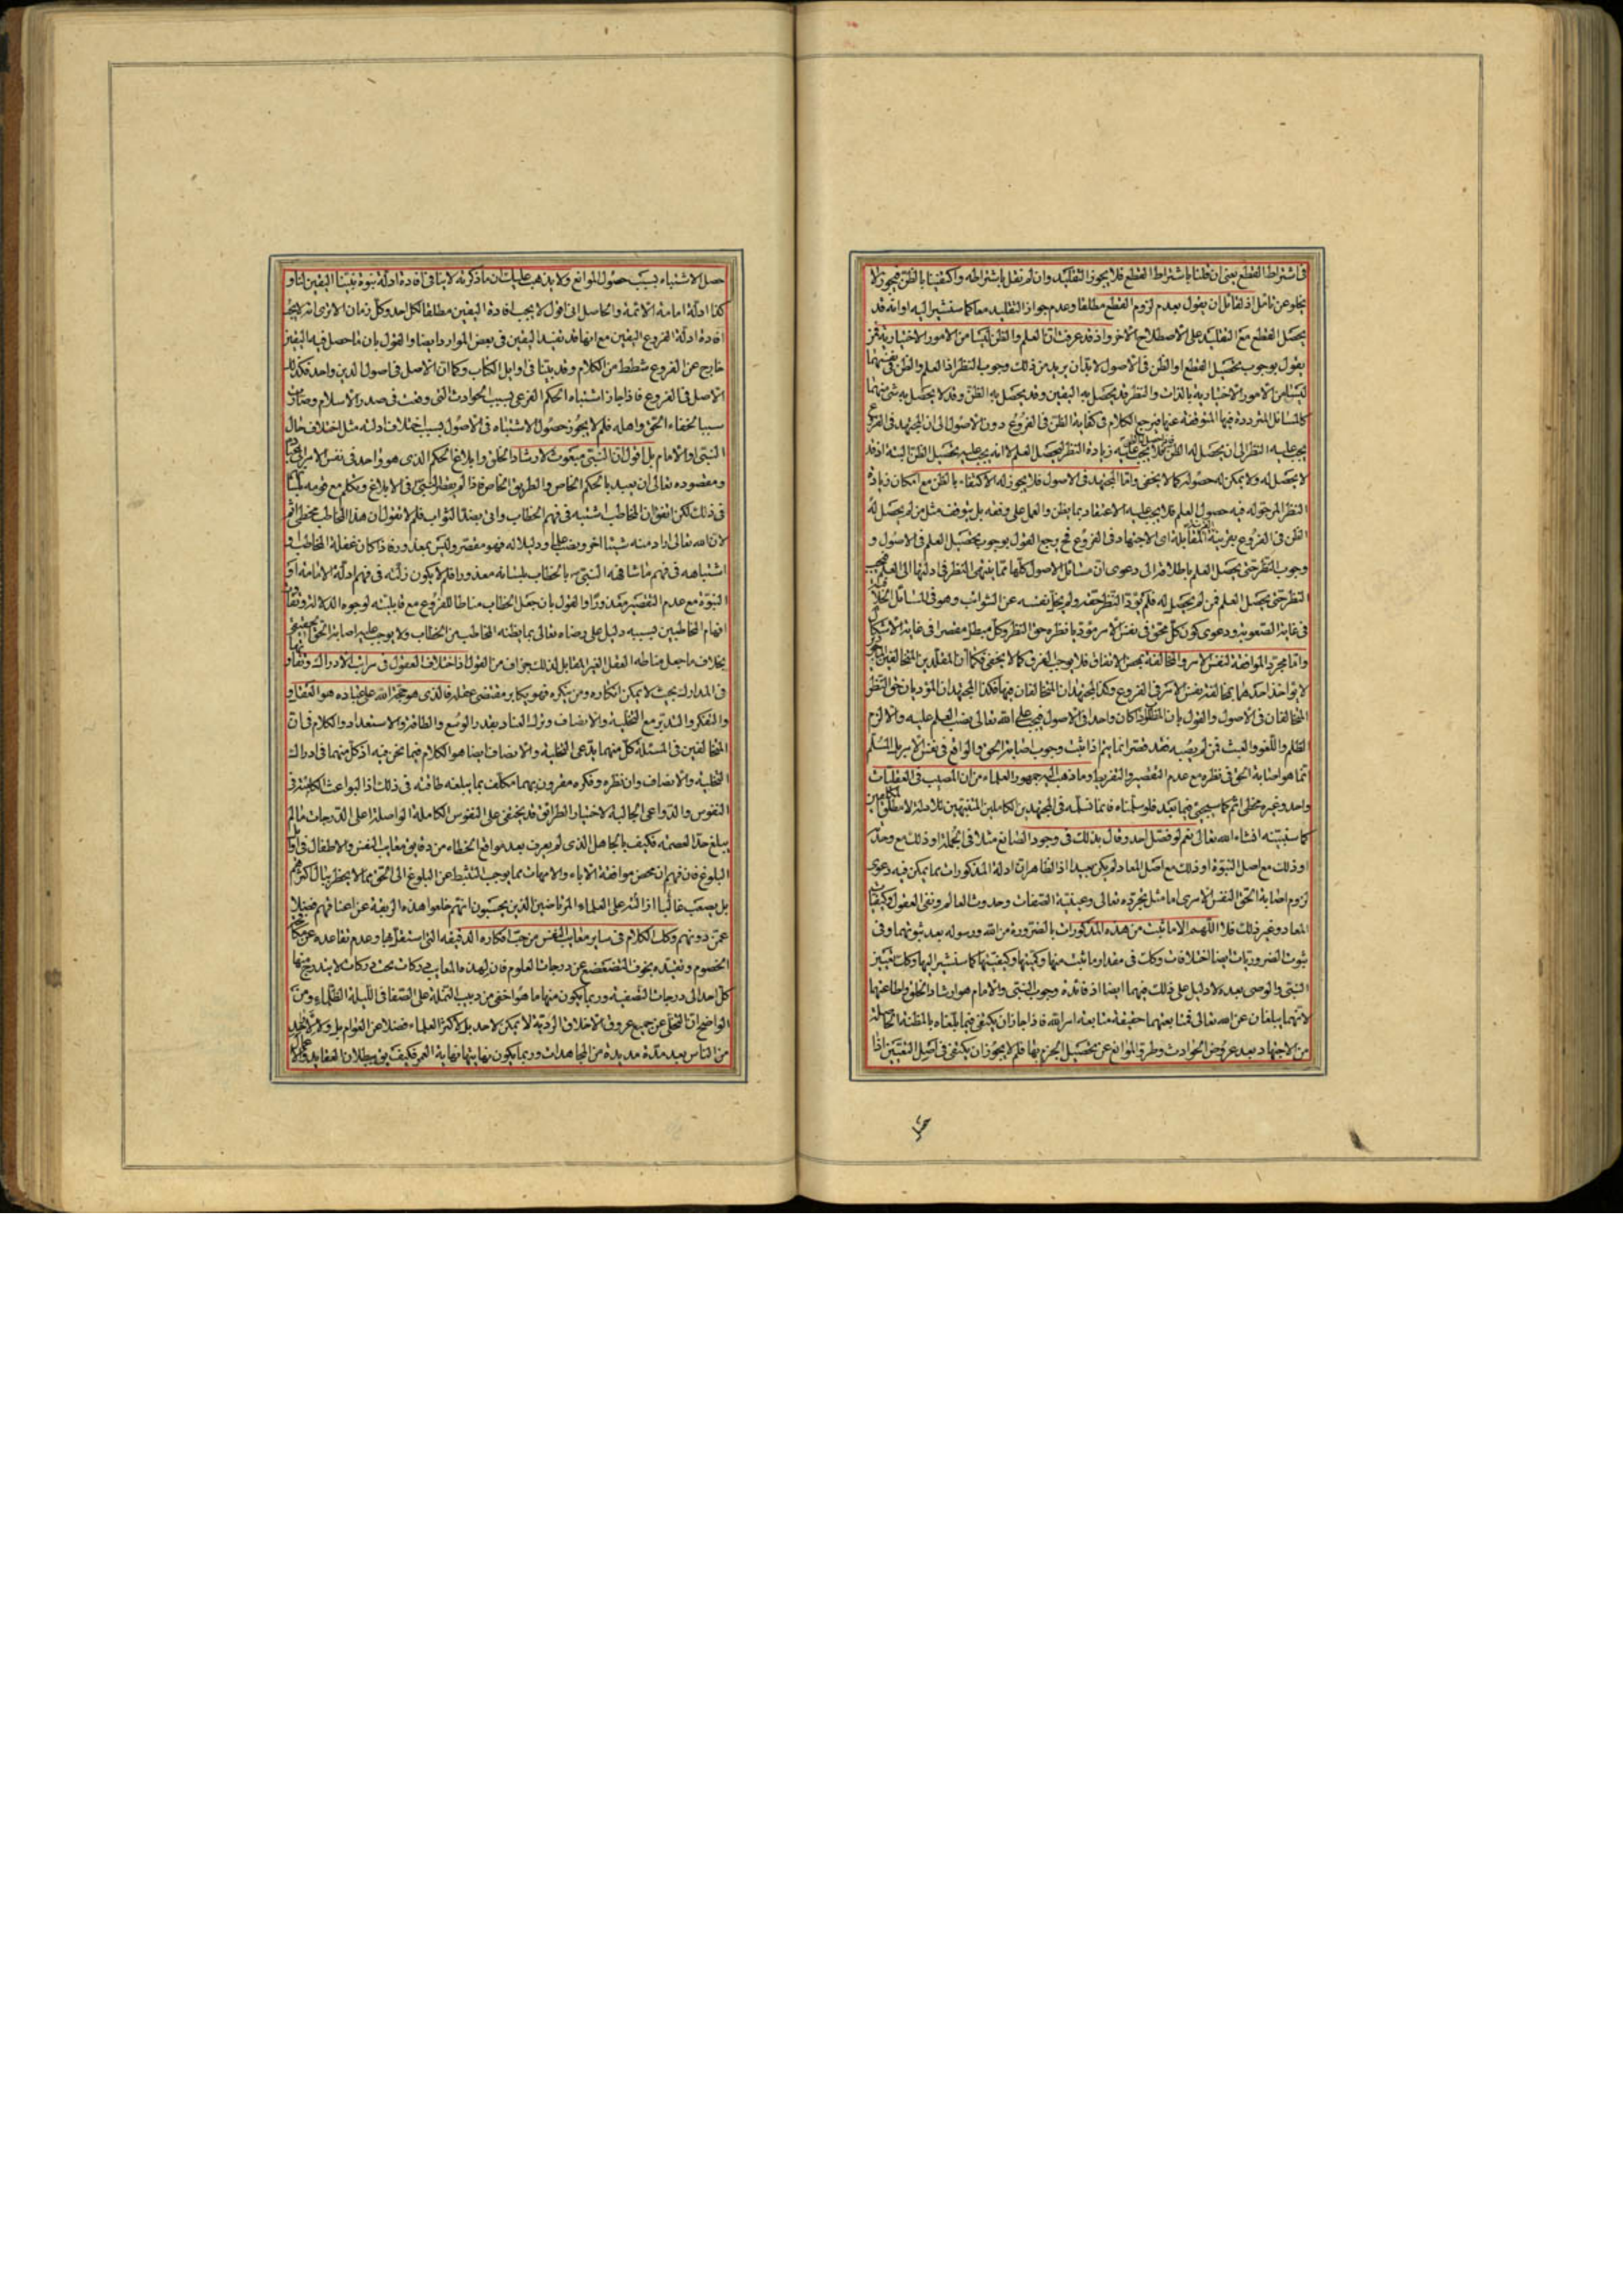 فى اشتراط القطع يعنى ان قلنا باشتراط القطع فلا يجوز التقليد وان لم نقل باشتراطه واكتفينا بالظن فيجوز ولا
يخلو عن تامل اذ لقائل ان يقول بعدم لزوم القطع مطلقا وعدم جواز التقليد معا كما سنشير اليه او انه قد
يحصل القطع مع التقليد على الاصطلاح الاخر واذ قد عرفت ان العلم والظن ليسا من الامور الاختيارية فمن
يقول بوجوب تحصيل القطع او الظن فى الاصول لابد ان يريد من ذلك وجوب النظر اذ العلم والظن فى نفسهما
ليسا من الامور الاختيارية بالذات والنظر قد يحصل به اليقين وقد يحصل به الظن وقد لا يحصل به شئ منهما
كالمسائل المتردد فيها المتوقف عنها فيرجع الكلام فى كفاية الظن فى الفروع دون الاصول الى ان المجتهد فى الفروع
يجب عليه النظر الى ان يحصل له الظن فلا يجب عليه زيادة النظر ليحصل العلم لا انه يجب عليه تحصيل الظن البتة اذ قد
لا يحصل له ولا يمكن له حصوله كما لا يخفى واما المجتهد فى الاصول فلا يجوز له الاكتفاء بالظن مع امكان زيادة
النظر المرجو له فيه حصول العلم فلا يجب عليه الاعتقاد بما يظن والعمل على وفقه بل يتوقف مثل من لم يحصل له
الظن فى الفروع بقرينة المقابلة اى الاجتهاد فى الفروع فح يرجع القول بوجوب تحصيل العلم فى الاصول و
وجوب النظر حتى يحصل العلم باطلاقه الى دعوى ان مسائل الاصول كلها مما ينتهى النظر فى ادلتها الى العلم فيجب
النظر حتى يحصل العلم فمن لم يحصل له فلم يؤد النظر حقه ولم يخل نفسه عن الشوائب وهو فى المسائل الخلافية
فى غاية الصعوبة ودعوى كون كل محق فى نفس الامر مؤديا نظره حق النظر وكل مبطل مقصرا فى غاية الاشكال
واما مجرد الموافقة لنفس الامر والمخالفة بمحض الاتفاق فلا يوجب الفرق كما لا يخفى فكما ان المقلدين المتخالفين
لا يؤاخذ احدهما بمخالفته نفس الامر فى الفروع وكذا المجتهدان المتخالفان فيها فكذا المجتهدان المؤديان حق النظر
المتخالفان فى الاصول والقول بان الحق اذا كان واحدا فى الاصول فيجب على الله تعالى نصب العلم عليه والا لزم
الظلم واللغو والعبث فمن لم يصبه فقد قصر انما يتم اذا ثبت وجوب اصابة الحق والواقع فى نفس الامر بل المسلم
انما هو اصابة الحق فى نظره مع عدم التقصير والتفريط وما ذهب اليه جمهور العلماء من ان المصيب فى العقليات
واحد وغيره مخطئ اثم كما سيجيئ فيما بعد فلو سلمناه فانما نسلمه فى المجتهدين الكاملين المتنبهين للادلة لا مطلق
كما سنبينه انشاء الله تعالى نعم لو فصل احد وقال بذلك فى وجود الصانع مثلا فى الجملة او ذلك مع وحدته
او ذلك مع اصل النبوة او ذلك مع اصل المعاد لم يكن بعيدا اذ الظاهر ان ادلة المذكورات مما يمكن فيه دعوى
لزوم اصابة الحق النفس الامرى اما مثل تجرده تعالى وعينية الصفات وحدوث العالم ونفى العقول وكيفيات
المعاد وغير ذلك فلا اللهم الا ما ثبت من هذه المذكورات بالضرورة من الله ورسوله بعد ثبوتهما وفى
ثبوت الضروريات ايضا اختلافات وكلت فى مقدار ما ثبت منها وكميتها وكيفيتها كما سنشير اليها وكذلك تعيين
النبى والوصى بعده لا دليل على ذلك فيهما ايضا اذ فائدة وجوب النبى والامام هو ارشاد الخلق واطاعتهما
لانهما يبلغان عن الله تعالى فمتابعتهما حقيقة متابعة امر الله فاذا جاز ان يكتفى فيما بلغاه بالمظنة الحاصلة
من الاجتهاد بعد عروض الحوادث وطرو الموانع عن تحصيل الجزم بها فلم لا يجوز ان يكتفى فى اصل التعيين اذا
حصل الاشتباه بسبب حصول الموانع ولا يذهب عليك ان ما ذكرته لا ينافى افادة ادلة نبوة نبينا اليقين لنا و
كذا ادلة امامة الائمة والحاصل انى اقول لا يجب افادة اليقين مطلقا لكل احد وكل زمان الا ترى انه لا يجب
افادة ادلة الفروع اليقين مع انها قد تفيد اليقين فى بعض الموارد ايضا والقول بان ما حصل فيه اليقين
خارج عن الفروع شطط من الكلام وقد بينا فى اوايل الكتاب وكما ان الاصل فى اصول الدين واحد فكذلك
الاصل فى الفروع فاذا جاز اشتباه الحكم الفرعى بسبب الحوادث التى وقعت فى صدر الاسلام وصارت
سببا لخفاء الحق واهله فلم لا يجوز حصول الاشتباه فى الاصول بسبب اختلاف ادلته مثل اختلاف حال
النبى او الامام بل اقول ان النبى مبعوث لارشاد الخلق وابلاغ الحكم الذى هو واحد فى نفس الامر
ومقصوده تعالى ان يعبد بالحكم الخاص والطريق الخاص فاذا لم يقصر النبى فى الابلاغ وتكلم مع قومه بلسانه
فى ذلك لكن اتفق ان المخاطب اشتبه فى فهم الخطاب واتى بضد الثواب فلم لا نقول ان هذا المخاطب مخطئ اثم
لان الله تعالى اراد منه شيئا اخر ونصب عليه دليلا له فهو مقصر وليس بمعذور فاذا كان غفلة المخاطب و
اشتباهه فى فهم ما شافهه النبى ص بالخطاب بلسانه معذورا فلم لا يكون زلته فى فهم ادلة الامامة او
النبوة مع عدم التقصير معذورا والقول بان جعل الخطاب مناطا للفروع مع قابليته لوجوه الدلالة وتفاوت
افهام المخاطبين فيه دليل على رضاه تعالى بما يظنه المخاطب من الخطاب ولا يوجب عليه اصابة الحق
بخلاف ما جعل مناطه العقل الغير القابل لذلك جزاف من القول اذ اختلاف العقول فى مراتب الادراك وتفاوتها
فى المدارك بحيث لا يمكن انكاره ومن ينكره فهو يكابر مقتضى عقله فالذى هو حجة الله على عباده هو العقل و
والتفكر والتدبر مع التخلية والانصاف وترك العناد بقدر الوسع والطاقة والاستعداد والكلام فى ان
المتخالفين فى المسئلة كل منهما يدعى التخلية والانصاف ايضا هو الكلام فيما نحن فيه اذ كل منهما فى ادراك
التخلية والانصاف وان نظره وفكره مقرون بهما مكلف بما يبلغه طاقته فى ذلك اذ البواعث الكامنة فى
النفوس والدواعى الجالبة لاختيار الطرائق قد يختفى على النفوس الكاملة الواصلة اعلى الدرجات ما لم
يبلغ حد العصمة فكيف بالجاهل الذى لم يعرف بعد مواقع الخطاء من دقايق معايب النفس والاطفال فى اول
البلوغ فان فهم ان محض موافقة الاباء والامهات مما يوجب التثبط عن البلوغ الى الحق مما لا يخطر ببال اكثرهم
بل يصعب غالبا ازالته على العلماء المرتاضين الذين يحسبون انهم خلعوا هذه الربقة عن اعناقهم فضلا
عمن دونهم وكذلك الكلام فى ساير معايب النفس من حب افكاره الدقيقة التى استقراها وعدم تقاعده عن مكابرة
الخصوم وتعبده بخوف التضعضع عن درجات العلوم فان لهذه المعايب دركات تحت دركات لا يتدرج منها
كل احد الى درجات التصفية وربما يكون منها ما هو اخفى من دبيب النملة على الصفا فى الليلة الظلماء ومن
الواضح ان التخلى عن جميع عروق الاخلاق الردية لا يمكن لاحد بل لاكثر العلماء فضلا عن العوام بل ولا
من الناس بعد مدة مديدة من المجاهدات وربما يكون نهايتها نهاية العمر فكيف يق ببطلان العقايد